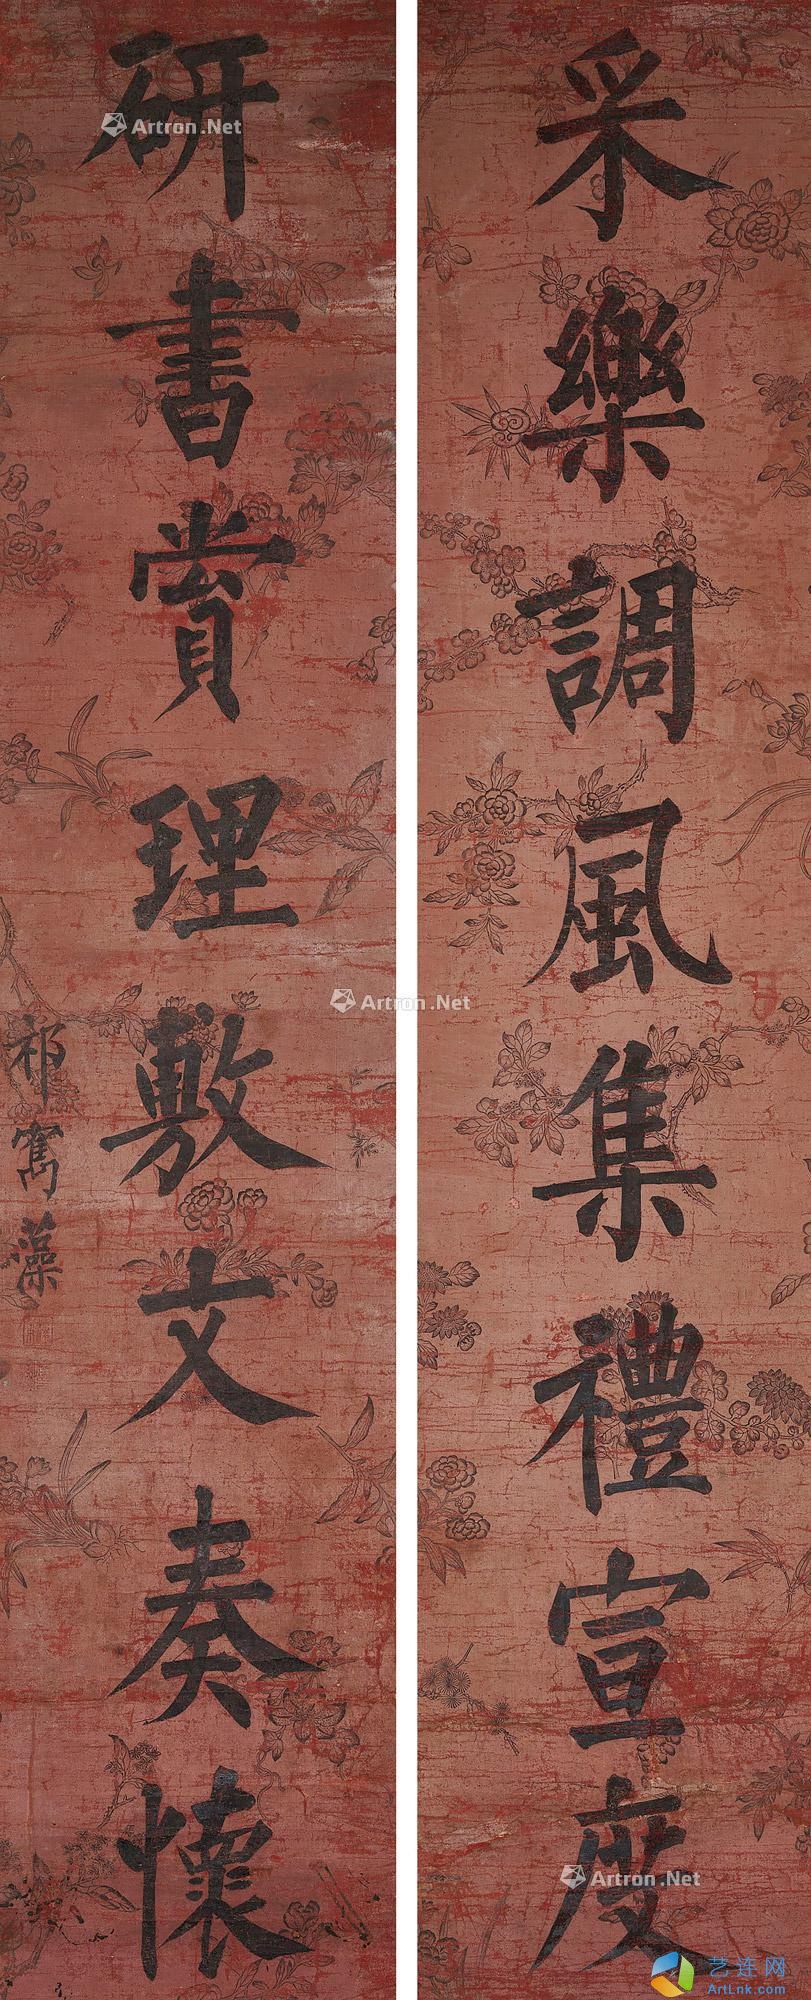 采樂調風集禮宣度
研書賞理敷文奏懷
祁寯藻
Artron.Net
Artron.Net
Artron.Net
艺连网
ArtLnk.com